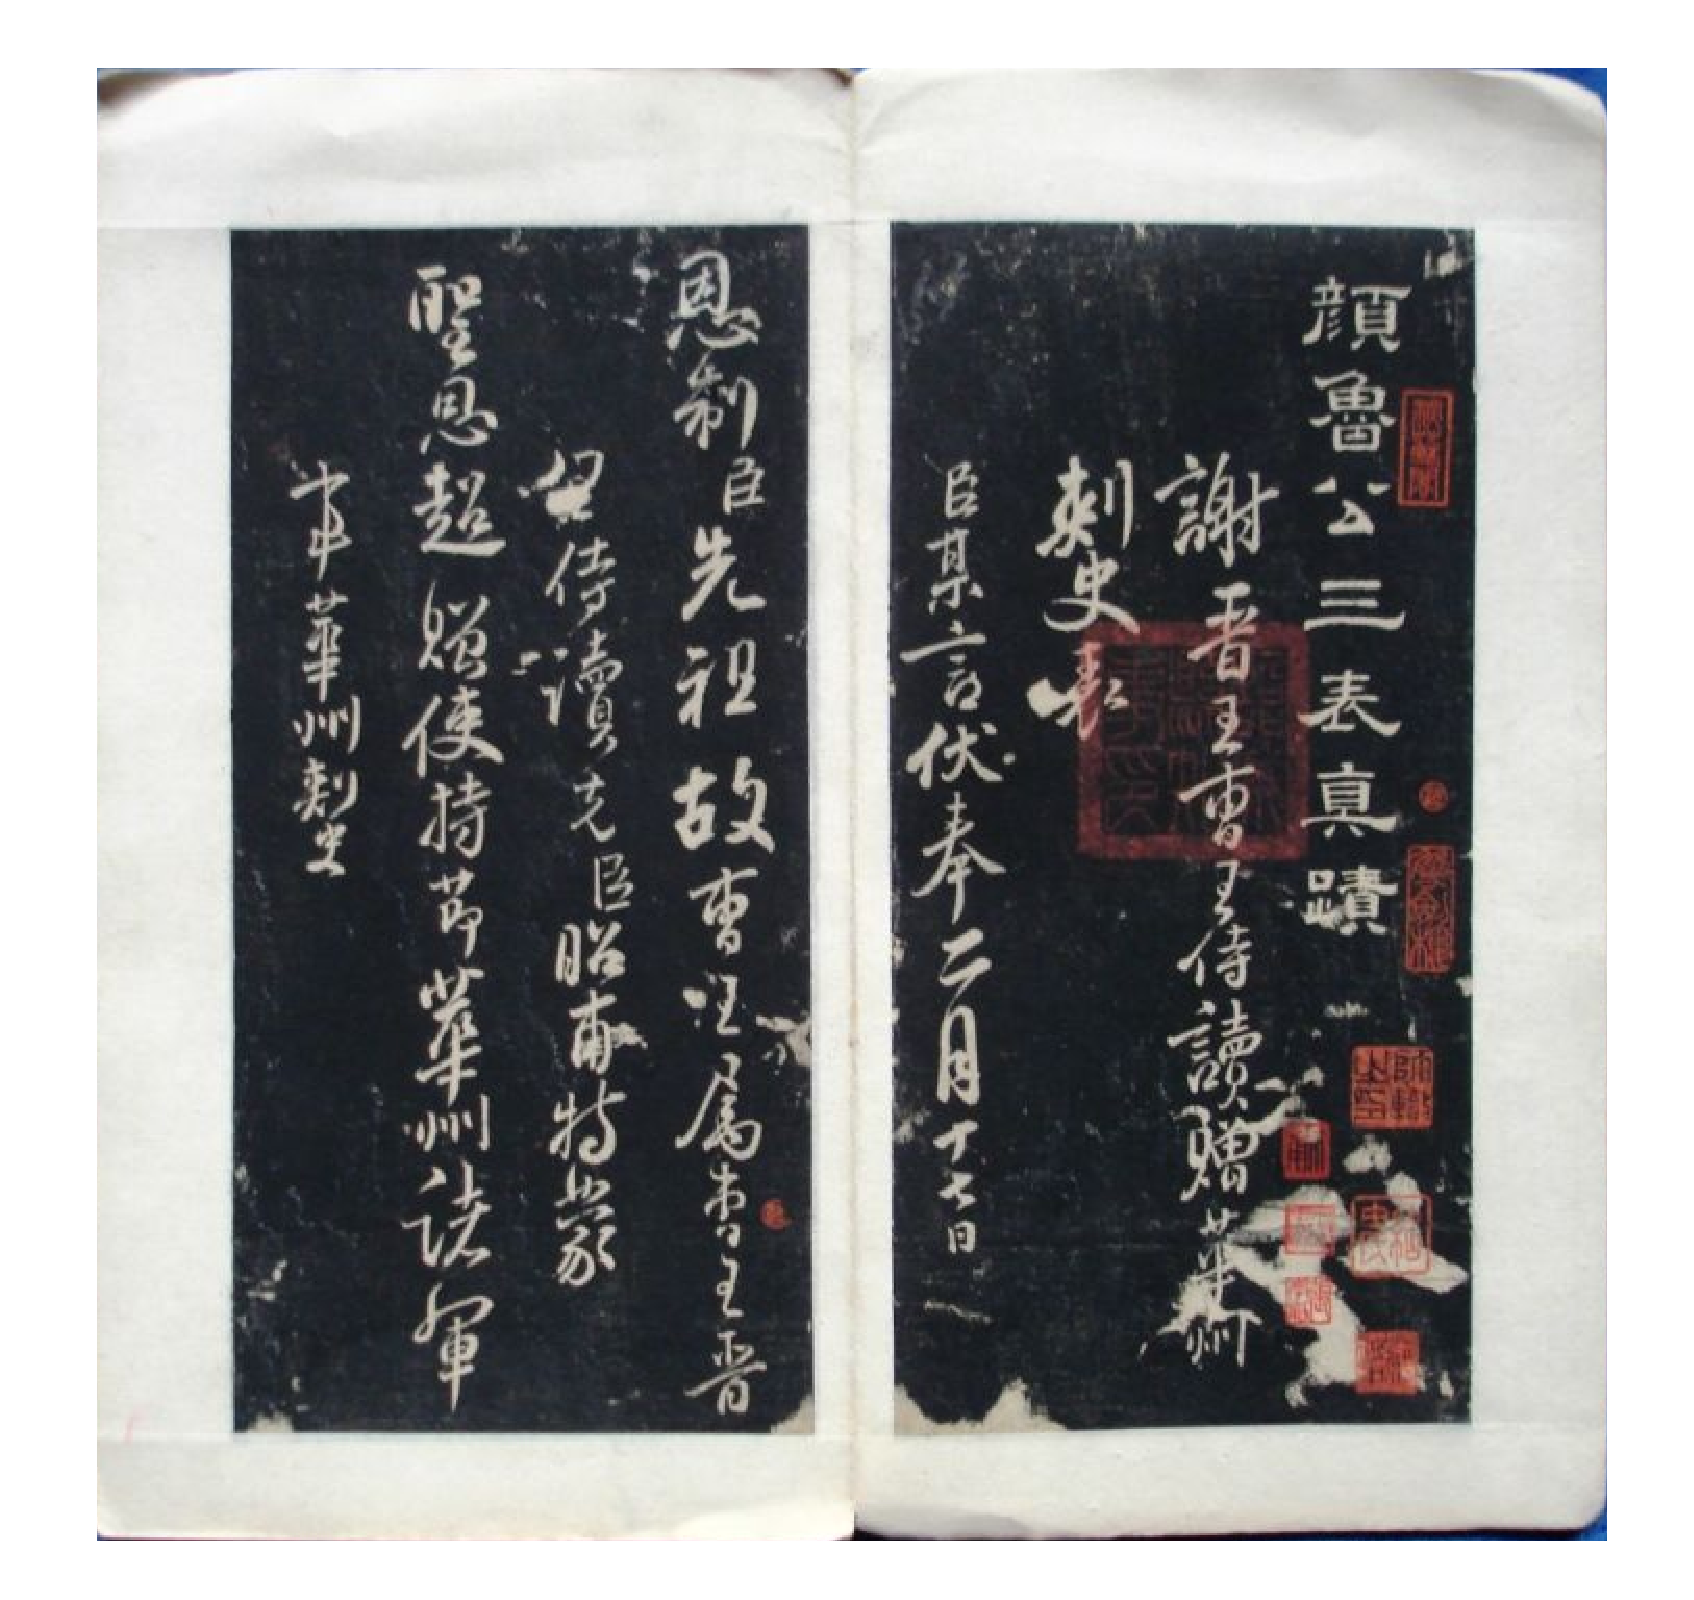 顏魯公三表真蹟
謝晋王曹王侍讀贈華州
刺史表
臣某言伏奉二月十七日
恩制臣先祖故曹王属晋
侍讀先臣昭甫特蒙
聖恩超贈使持節華州諸軍
事華州刺史